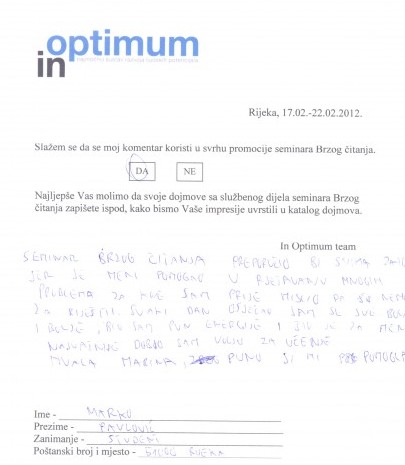 in optimum
Rijeka, 17.02.-22.02.2012.
Slažem se da se moj komentar koristi u svrhu promocije seminara Brzog čitanja.
DA NE
Najljepše Vas molimo da svoje dojmove sa službenog dijela seminara Brzog
čitanja zapišete ispod, kako bismo Vaše impresije uvrstili u katalog dojmova.
In Optimum team
SEMINAR BRZOG ČITANJA PREPORUČIO BI SVIMA
JER JE MENI POMOGAO U RJEŠAVANJU MNOGIH
PROBLEMA ZA KOJE SAM PRIJE MISLIO DA SE
ZA RIJEŠITI. SVAKI DAN OSJEĆAO SAM SE SVE
I BOLJE, BIO SAM PUN ENERGIJE I ŠTO JE ZA
NAJVAŽNIJE DOBIO SAM VOLJU ZA UČENJE
HVALA MARINA, PUNO SI MI
Ime - MARKO
Prezime - PAVLOVIĆ
Zanimanje - STUDENT
Poštanski broj i mjesto - RIJEKA